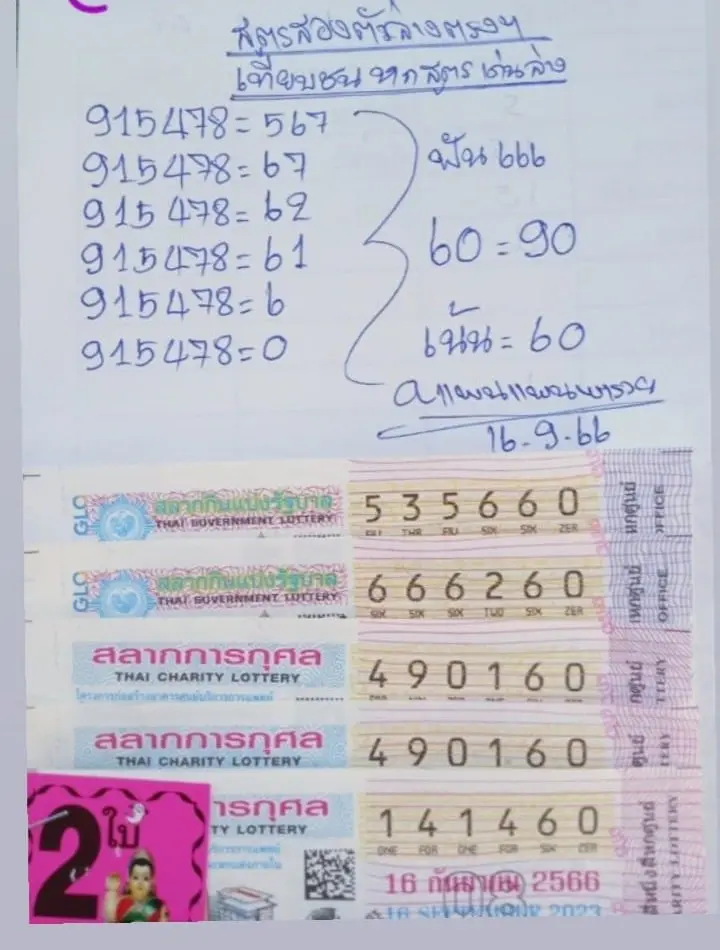 สูตรสองตัวล่างตรงๆ
เทียบชน หกสูตร เด่นล่าง
915478 = 567
915478 = 67
915478 = 62
915478 = 61
915478 = 6
915478 = 0
ฟัน 666
60 = 90
เน้น = 60
16-9-66
GLO สลากกินแบ่งรัฐบาล
THAI GOVERNMENT LOTTERY
5 3 5 6 6 0
FIV THR FIV SIX SIX ZER
หกศูนย์
OFFICE
GLO สลากกินแบ่งรัฐบาล
THAI GOVERNMENT LOTTERY
6 6 6 2 6 0
SIX SIX SIX TWO SIX ZER
หกศูนย์
OFFICE
สลากการกุศล
THAI CHARITY LOTTERY
4 9 0 1 6 0
กศูนย์
TTERY
สลากการกุศล
THAI CHARITY LOTTERY
4 9 0 1 6 0
ศูนย์
ERY
ารกุศล
TY LOTTERY
1 4 1 4 6 0
ONE FOR ONE FOR SIX ZER
สี่หนึ่งสี่หกศูนย์
ARITY LOTTERY
2 ใบ
16 กันยายน 2566
16 SEPTEMBER 2023